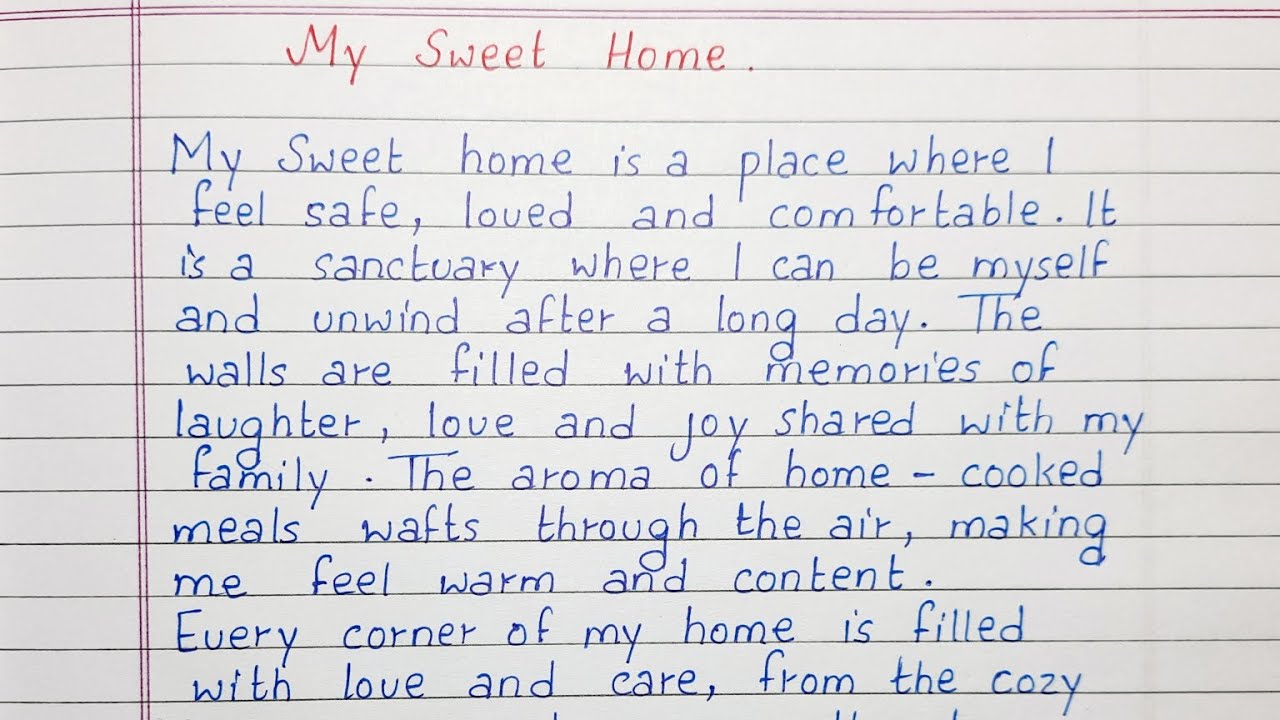 My Sweet Home.
My Sweet home is a place where I
feel safe, loved and comfortable. It
is a sanctuary where I can be myself
and unwind after a long day. The
walls are filled with memories of
laughter, love and joy shared with my
family. The aroma of home-cooked
meals wafts through the air, making
me feel warm and content.
Every corner of my home is filled
with love and care, from the cozy